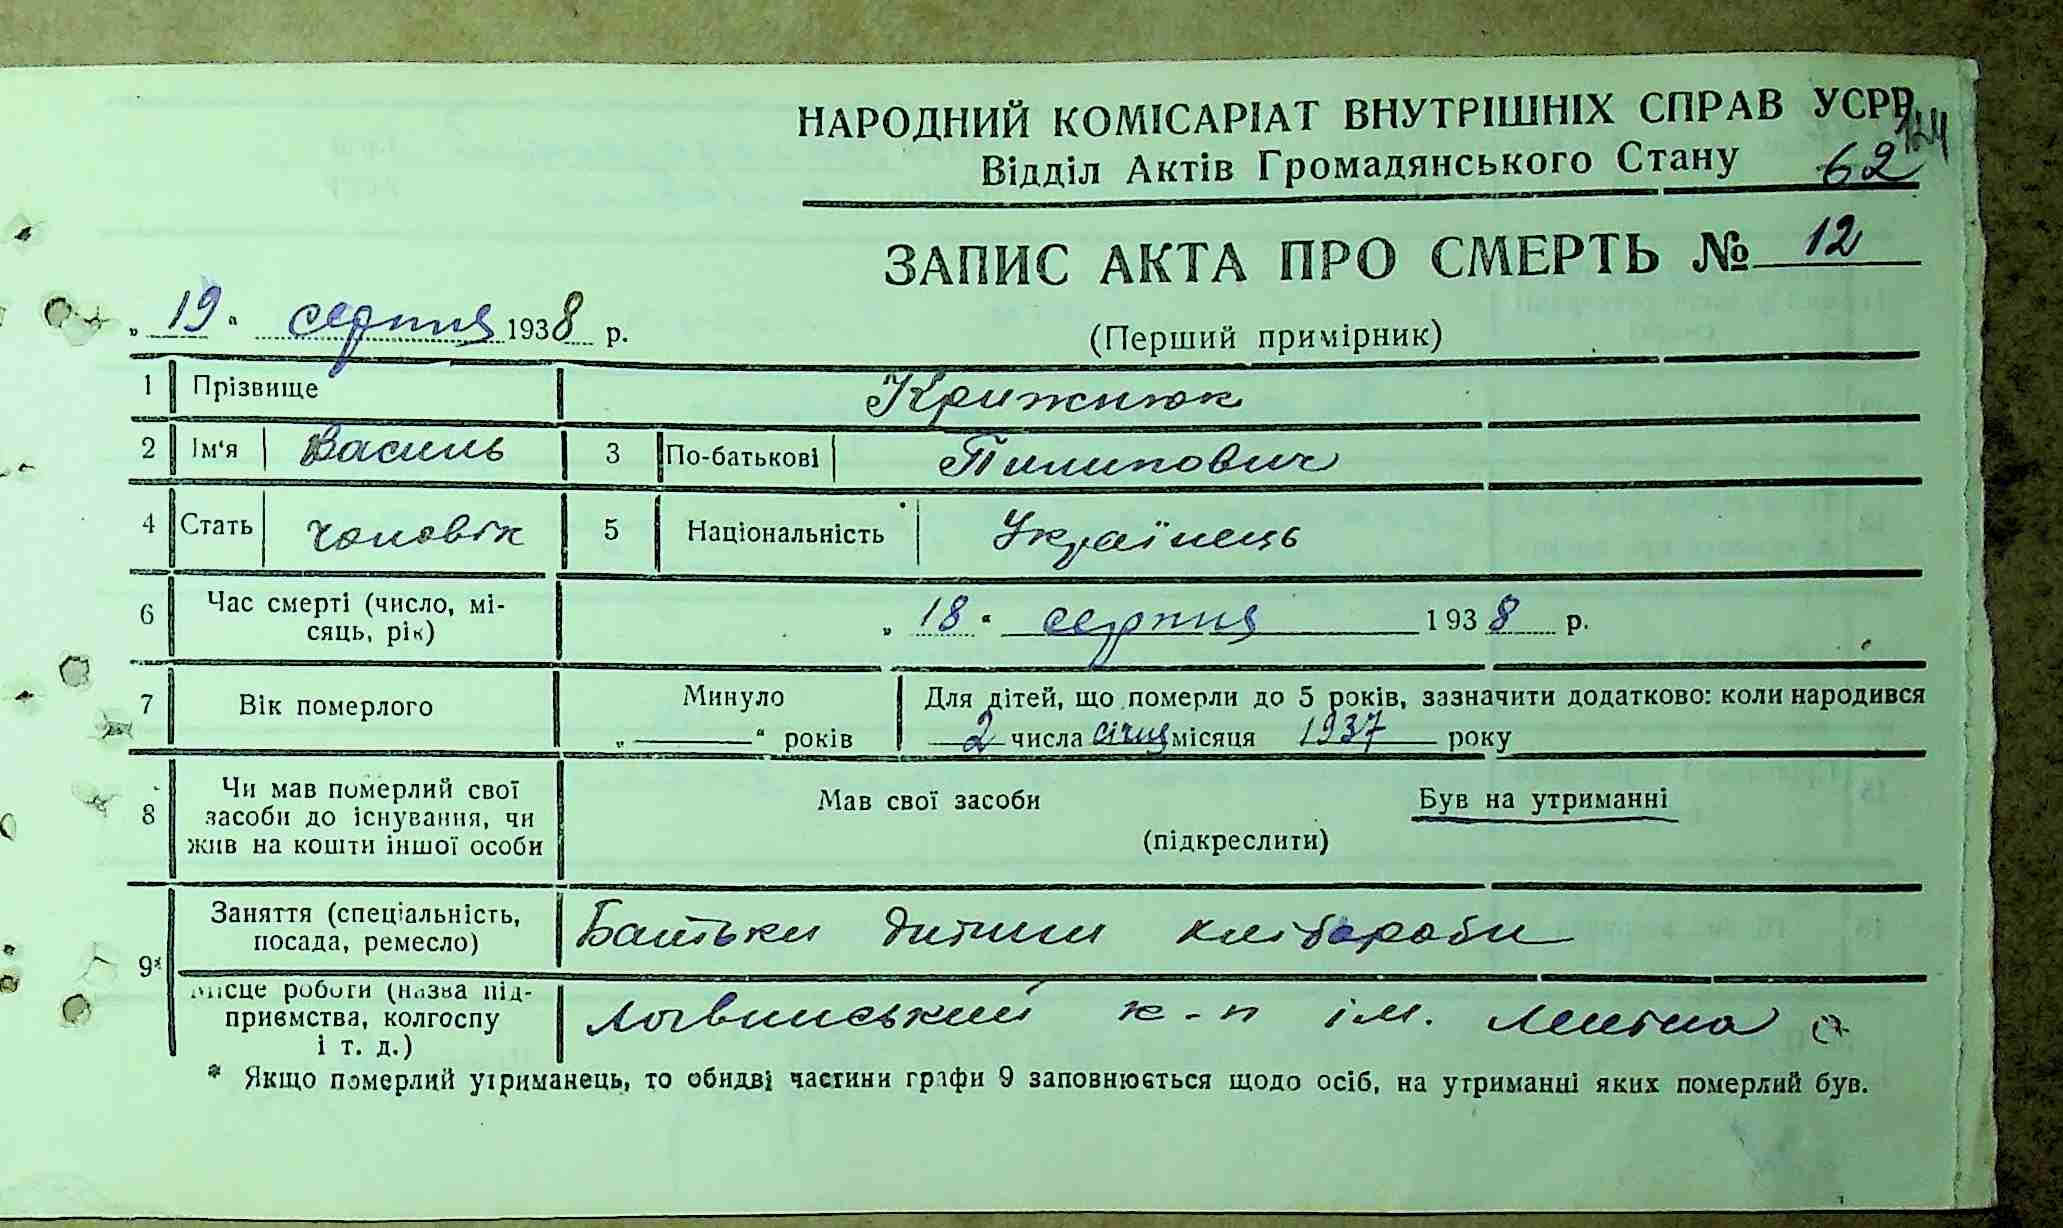 НАРОДНИЙ КОМІСАРІАТ ВНУТРІШНІХ СПРАВ УСРР
Відділ Актів Громадянського Стану 62
ЗАПИС АКТА ПРО СМЕРТЬ № 12
„ 19 “ серпня 1938 р.
(Перший примірник)
1 Прізвище Крижнюк
2 Ім'я Василь 3 По-батькові Пилипович
4 Стать чоловік 5 Національність Українець
6 Час смерті (число, мі-
сяць, рік) „ 18 “ серпня 1938 р.
7 Вік померлого Минуло Для дітей, що померли до 5 років, зазначити додатково: коли народився
„ “ років 2 числа січня місяця 1937 року
8 Чи мав померлий свої
засоби до існування, чи
жив на кошти іншої особи Мав свої засоби Був на утриманні
(підкреслити)
9* Заняття (спеціальність,
посада, ремесло) Батьки дитини хлібороби
Місце роботи (назва під-
приємства, колгоспу
і т. д.) к-п ім. Леніна
* Якщо померлий утриманець, то обидві частини графи 9 заповнюється щодо осіб, на утриманні яких померлий був.